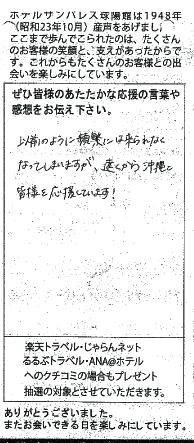 ホテルサンパレス球陽館は1948年
(昭和23年10月) 産声をあげまし
ここまで歩んでこられたのは、たくさん
のお客様の笑顔と、支えがあったからで
す。これからもたくさんのお客様との出
会いを楽しみにしています。
ぜひ皆様のあたたかな応援の言葉や
感想をお伝え下さい。
以前のように頻繁には来られなく
なってしまいますが、遠くから沖縄と
皆様を応援しています!
楽天トラベル・じゃらんネット
るるぶトラベル・ANA@ホテル
へのクチコミの場合もプレゼント
抽選の対象とさせていただきます。
ありがとうございました。
またお会いできる日を楽しみにしています。